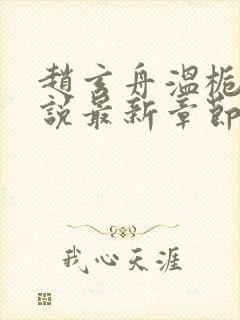 趙玄舟溫梔
說最新章節
我心天涯